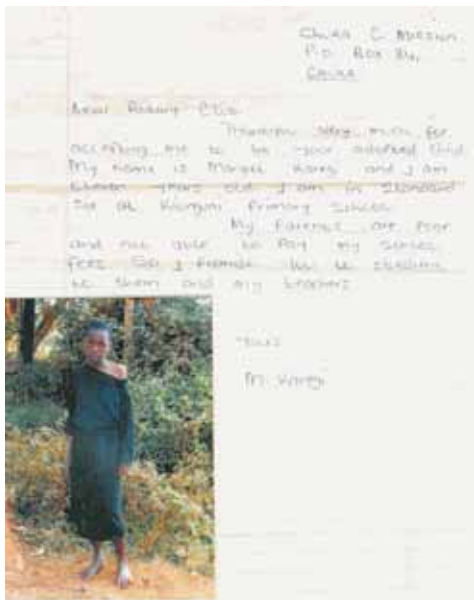 P.O. Box 84,
CHUKA
Dear Rotary Club
Thankyou very much for
accepting me to be your adopted child.
My name is Margret and I am
eleven years old. I am in standard
six at Primary School.
My Parents are poor
and not able to Pay my school
fees. So I Promise to be obedient
to them and my teachers.
Yours
M.